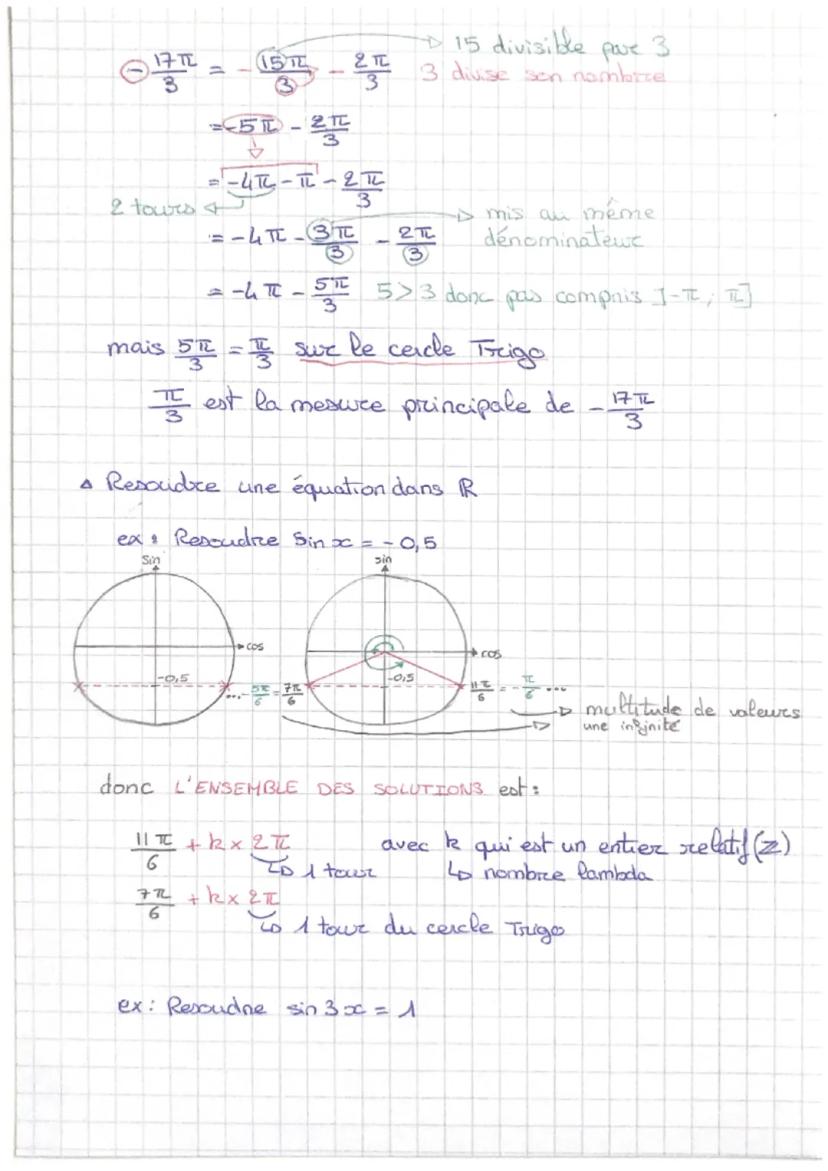 15 divisible par 3
- 17π/3 = - 15π/3 - 2π/3 3 divise son nombre
= -5π - 2π/3
= -4π - π - 2π/3
2 tours
mis au même
= -4π - 3π/3 - 2π/3 dénominateur
= -4π - 5π/3 5>3 donc pas compris ]-π ; π]
mais 5π/3 = π/3 sur le cercle Trigo
π/3 est la mesure principale de - 17π/3
Δ Resoudre une équation dans ℝ
ex : Resoudre Sin x = - 0,5
Sin sin
cos cos
-0,5 ...- 5π/6 = 7π/6 -0,5 11π/6 = - π/6 ...
multitude de valeurs
une infinité
donc L'ENSEMBLE DES SOLUTIONS est :
11π/6 + k × 2π avec k qui est un entier relatif (ℤ)
1 tour nombre lambda
7π/6 + k × 2π
1 tour du cercle Trigo
ex : Resoudre sin 3x = 1